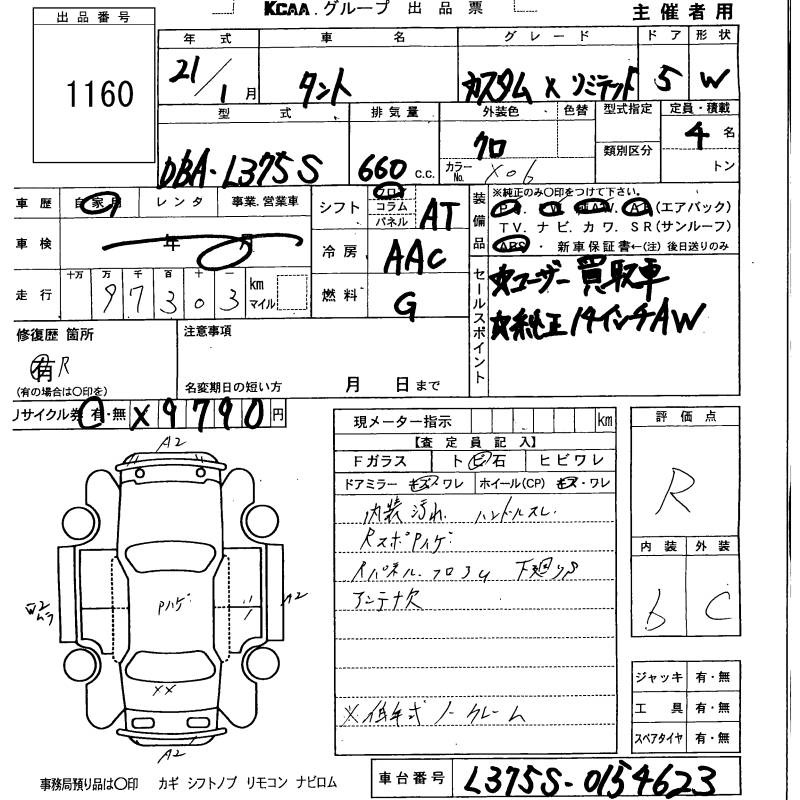 KCAA.グループ 出品票
主催者用
出品番号
1160
年式 車名 グレード ドア 形状
21/1月 タント カスタム X リミテッド 5 W
型式 排気量 外装色 色替 型式指定 定員・積載
DBA-L375S 660 c.c. クロ 類別区分 4名
カラーNo. X06 トン
車歴 自家用 レンタ 事業.営業車
シフト フロア コラム パネル AT
装備品 ※純正のみ〇印をつけて下さい。
PS. PW. AW. AB(エアバック)
TV. ナビ. カワ. SR(サンルーフ)
ABS・ 新車保証書←(注) 後日送りのみ
車検 年 月
冷房 AAC
走行 十万 万 千 百 十 一
97303 km マイル
燃料 G
セールスポイント
☆ユーザー買取車
☆純正14インチAW
修復歴 箇所
有 R
(有の場合は〇印を)
注意事項
名変期日の短い方 月 日まで
リサイクル券 有・無 ¥9790円
現メーター指示 km
【査定員記入】
Fガラス トビ石 ヒビワレ
ドアミラー キズ・ワレ ホイール(CP) キズ・ワレ
内装汚れ. ハンドルスレ.
RスポPハゲ
下廻りS
アンテナ欠
※低年式ノークレーム
評価点
R
内装 外装
b C
ジャッキ 有・無
工具 有・無
スペアタイヤ 有・無
A2
Pハゲ
A2
ムラ
XX
A2
事務局預り品は〇印 カギ シフトノブ リモコン ナビロム
車台番号 L375S-0154623